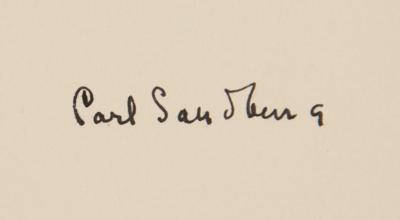 Carl Sandburg